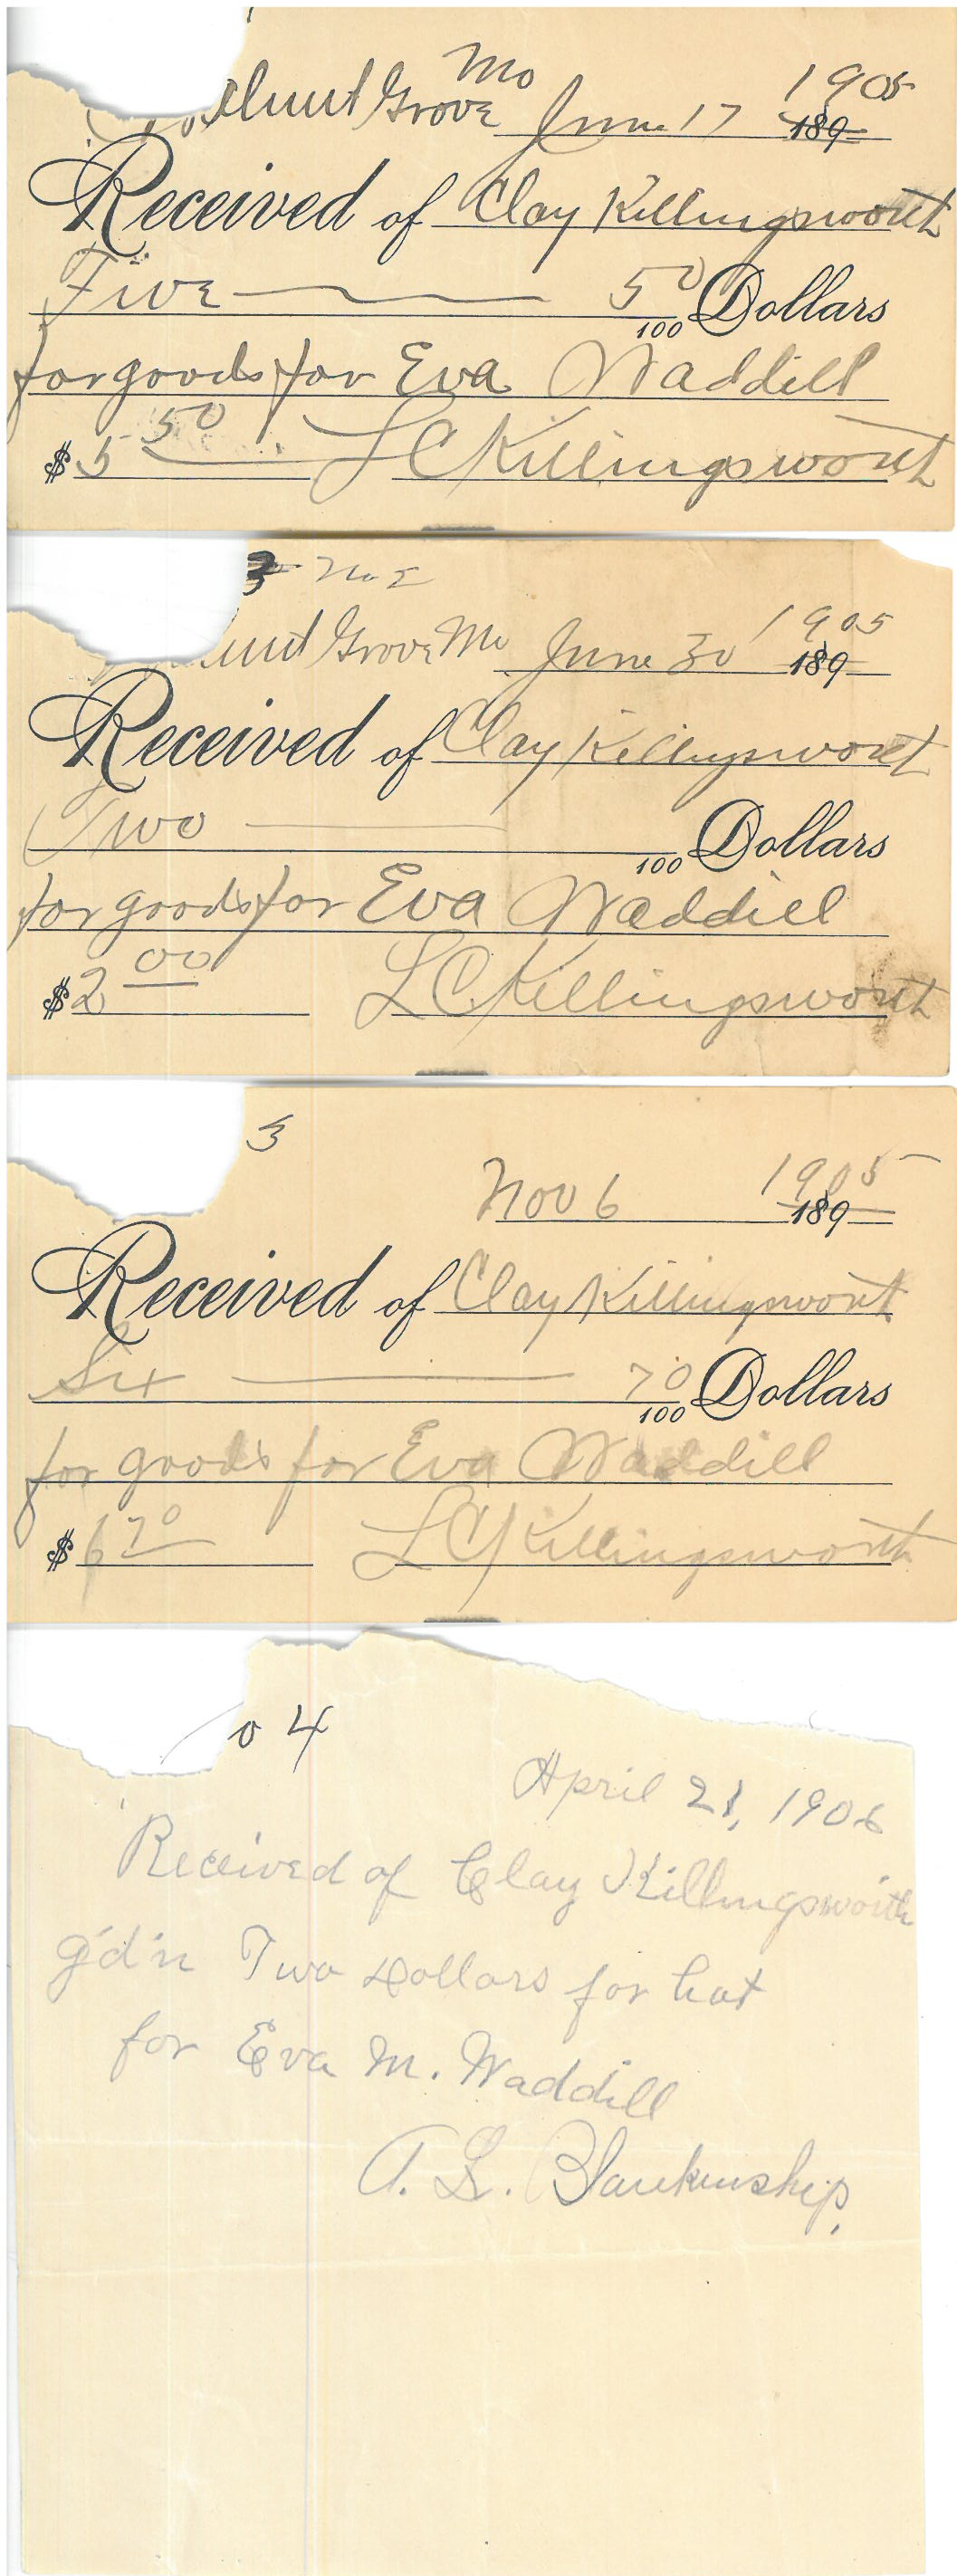 Mo
lnut Grove June 17 1905
189
Received of Clay Killingsworth
Five 50
100 Dollars
for goods for Eva Waddill
$ 5 50 L C Killingsworth
3 No 2
nut Grove Mo June 30 1905
189
Received of Clay Killingsworth
Two
100 Dollars
for goods for Eva Waddill
$ 2 00 L C Killingsworth
3
Nov 6 1905
189
Received of Clay Killingsworth
Six 70
100 Dollars
for goods for Eva Waddill
$ 6 70 L C Killingsworth
o 4
April 21, 1906
Received of Clay Killingsworth
g'd'n Two Dollars for hat
for Eva M. Waddill
A. L. Blankenship.